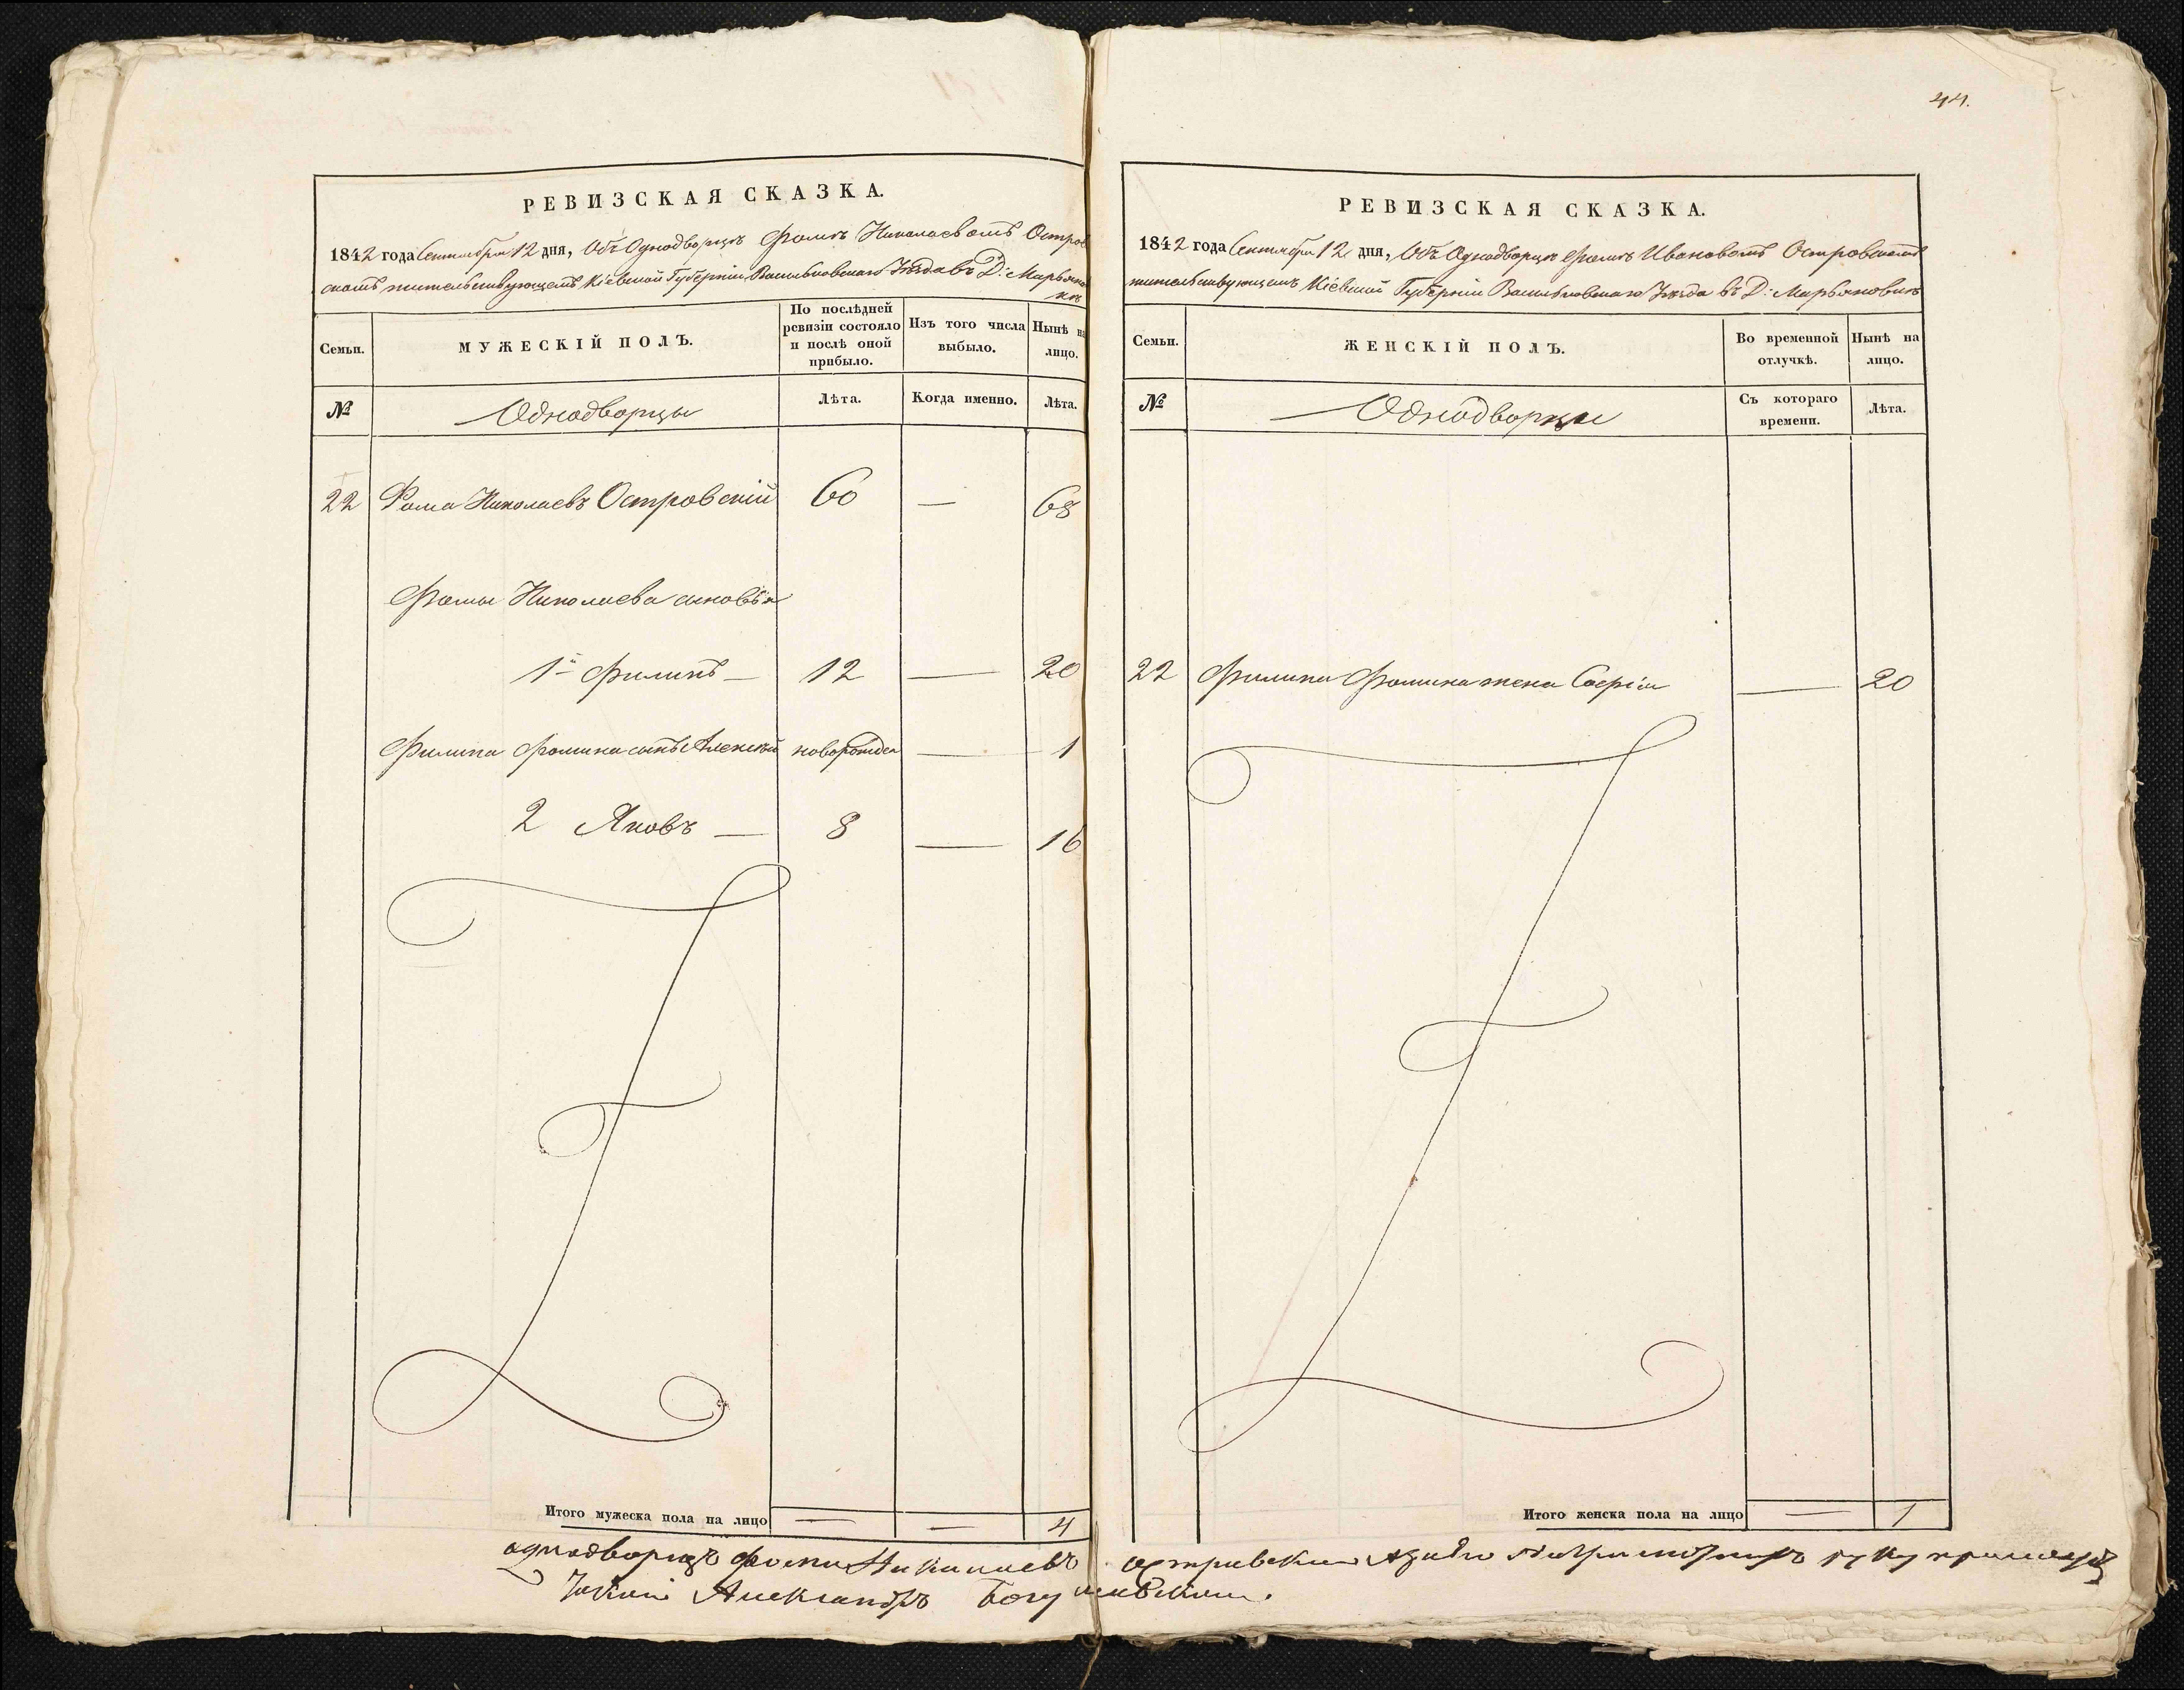 44.
РЕВИЗСКАЯ СКАЗКА.
1842 года Сентября 12 дня, Объ Однодворцѣ Фомѣ Николаевомъ Остров
скомъ жительствующемъ Кіевской Губерніи Васильковского Уѣзда въ Д: Марьянов
кѣ
Семьи.
МУЖЕСКІЙ ПОЛЪ.
По послѣдней
ревизіи состояло
и послѣ оной
прибыло.
Изъ того числа
выбыло.
Нынѣ на
лицо.
№
Однодворцы
Лѣта.
Когда именно.
Лѣта.
22 Фома Николаевъ Островскій 60 — 68
Фомы Николаева сыновья
1й Филипъ — 12 — 20
Филипа Фомина сынъ Алексѣй новорожден — 1
2 Яковъ — 8 — 16
Итого мужеска пола на лицо — — 4
РЕВИЗСКАЯ СКАЗКА.
1842 года Сентября 12 дня, Объ Однодворцѣ Фомѣ Ивановомъ Островскомъ
жительствующемъ Кіевской Губерніи Васильковского Уѣзда въ Д: Марьяновкѣ
Семьи.
ЖЕНСКІЙ ПОЛЪ.
Во временной
отлучкѣ.
Нынѣ на
лицо.
№
Однодворцы
Съ котораго
времени.
Лѣта.
22 Филипа Фомина жена Софія — 20
Итого женска пола на лицо — 1
однодворецъ Фома Николаевъ островский руку приложилъ
Александръ